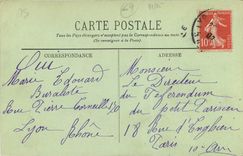 CARTE POSTALE
Tous les Pays étrangers n'acceptent pas la Correspondance au recto
(Se renseigner à la Poste)
CORRESPONDANCE
ADRESSE
Oui
Marie Edouard
Buraliste
Rue Pierre Corneille
Lyon Rhône
Monsieur
Le Directeur
du Referendum
du Petit Parisien
18 Rue d'Enghien
Paris
10